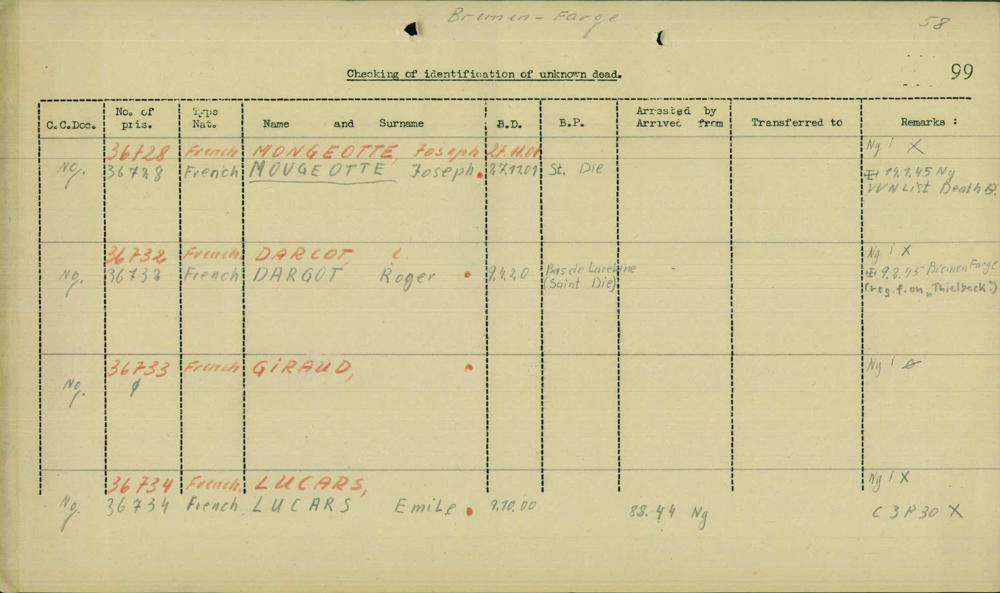 Bremen-Farge
58
99
Checking of identification of unknown dead.
C.C.Doc. No. of pris. Type Nat. Name and Surname B.D. B.P. Arrested by Arrived from Transferred to Remarks :
36728 French MONGEOTTE, Joseph 27.11.01 Ng X
Ng. 36728 French MOUGEOTTE Joseph. 27.11.01 St. Die 45 Ng
VVN List Death B.
36732 French DARCOT, Ng X
Ng. 36732 French DARGOT Roger 9.4.20 Bas de 45 Bremen Farge
(Saint Die) (reg. f. on "Thielbeck".)
36733 French GIRAUD, Ng
Ng. ø
36734 French LUCARS, Ng X
Ng. 36734 French LUCARS Emile. 9.10.00 Ng C 3 P 30 X